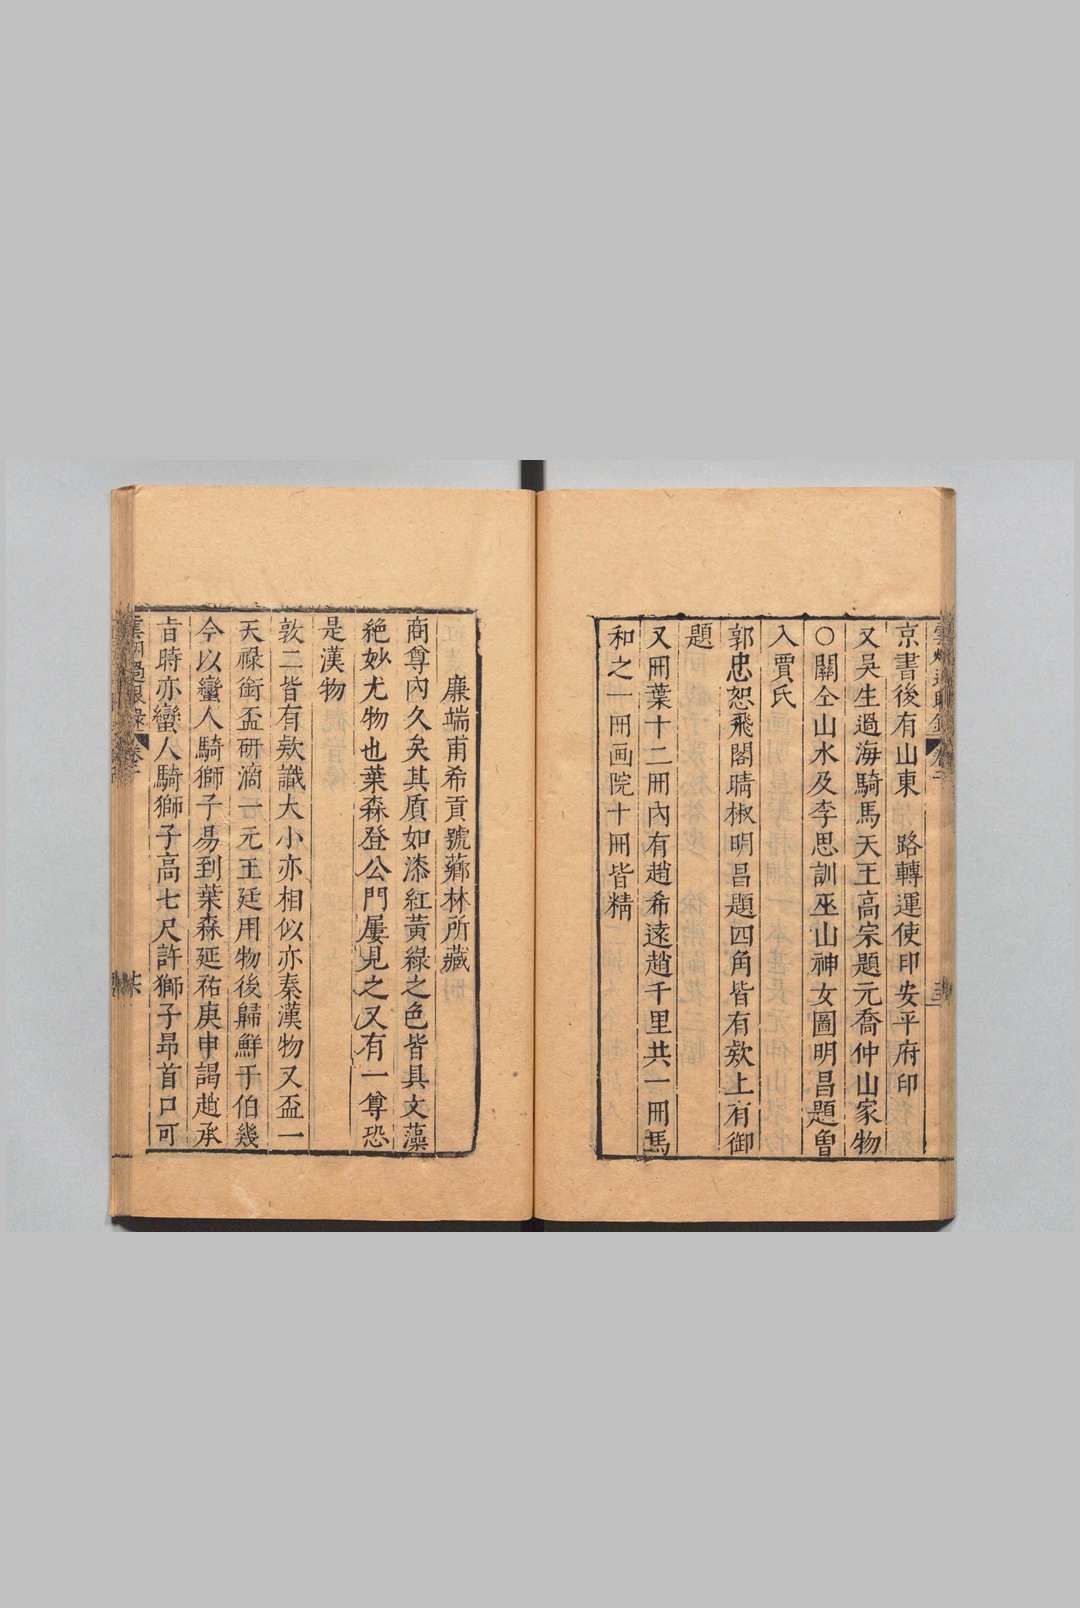 京書後有山東　路轉運使印安平府印
又吴生過海騎馬天王高宗題元喬仲山家物
〇關仝山水及李思訓巫山神女圖明昌題曾
入賈氏
郭忠恕飛閣晴椒明昌題四角皆有欵上有御
題
又冊葉十二冊內有趙希遠趙千里共一冊馬
和之一冊画院十冊皆精
廉端甫希貢號薌林所藏
商尊內久矣其質如漆紅黃綠之色皆具文藻
絶妙尤物也葉森登公門屢見之又有一尊恐
是漢物
敦二皆有欵識大小亦相似亦秦漢物又盃一
天祿銜盃研滴一元王廷用物後歸鮮于伯幾
今以蠻人騎獅子易到葉森延祐庚申謁趙承
旨時亦蠻人騎獅子高七尺許獅子昂首口可
雲烟過眼錄